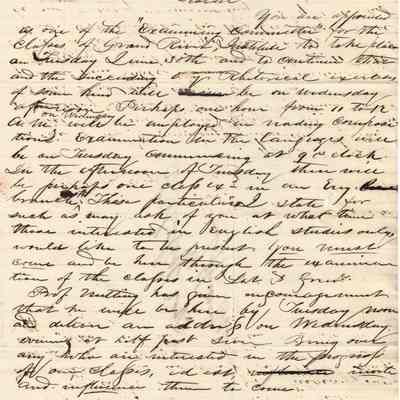 You are appointed
as one of the "Examining Committee" for the
Classes of Grand River Institute to take place
on Tuesday June 30th and to continue that
and the succeeding day. Rhetorical exercises
of some kind will be on Wednesday
afternoon. Perhaps one hour from 11 to 12
A.M. on Wednesday will be employed in reading composi
tions. Examination in the languages will
be on Tuesday commencing at 9 o'clock
In the afternoon of Tuesday there will
be perhaps one class ex- in an Eng
branch. These particulars I state for
such as may ask of you at what time
those interested in English studies only
would like to be present. You must
come and be here through the examina
tion of the classes in Lat. & Greek.
Prof Nutting has given encouragement
that he will be here by Tuesday noon
and deliver an address on Wednesday
evening at half past seven. Bring over
any who are interested in the progress
of our classes, id est invite
and influence them to come.